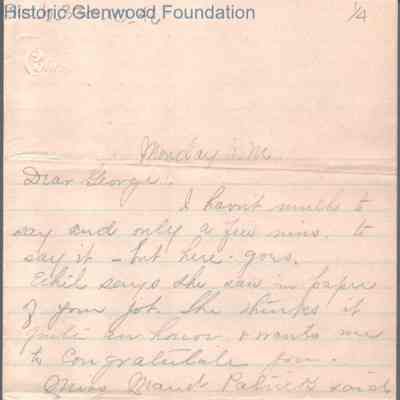 Historic Glenwood Foundation
1/4
Monday A.M.
Dear George:
I havn't much to
say and only a few mins. to
say it - but here goes.
Ethel says she saw in paper
of your job. She thinks it
quite an honor & wants me
to congratulate you.
Miss Maude said